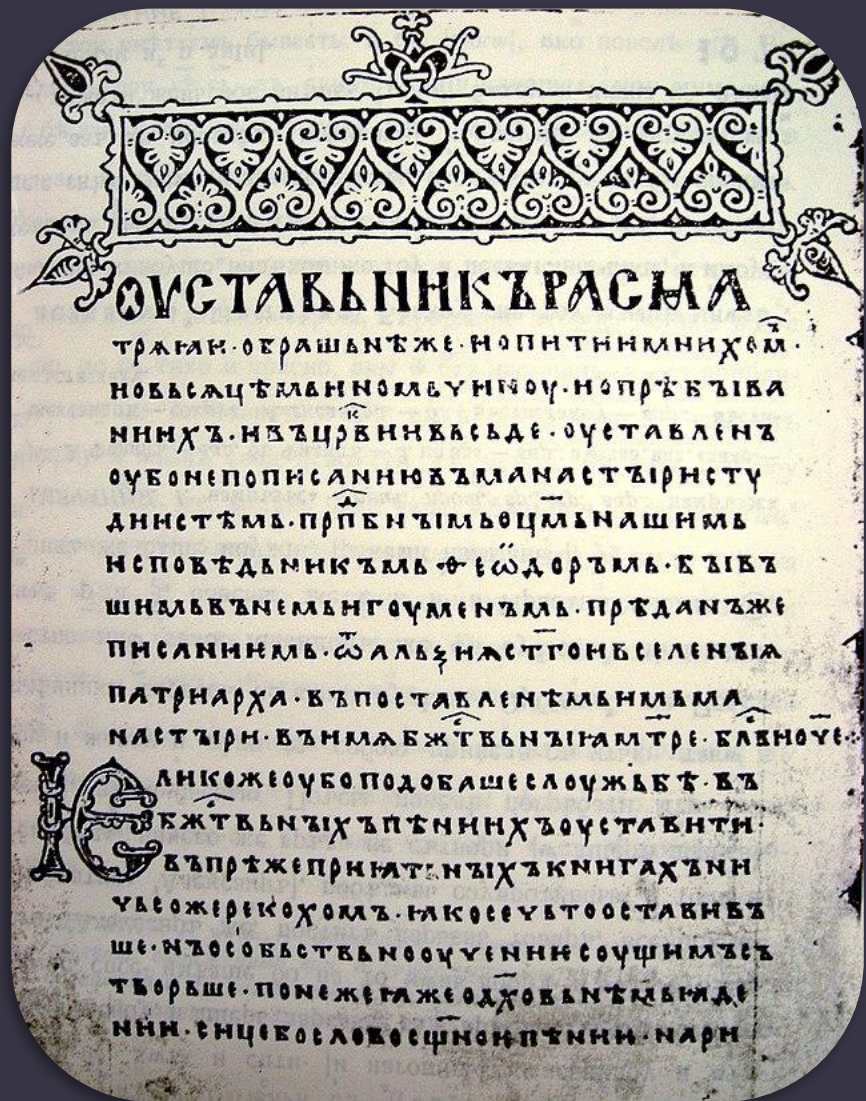 ОУСТАВЬНИКЪРАСМА
трѧꙗи·обрашьнѣже·ипитиимнихомъ·
новьсѧцѣмьиномьчиноу·ипрѣбꙑва
ниихъ·ивъцр҃квиивьсьде·оуставленъ
оубонепописаниювъманастꙑристу
диистѣмь·прп҃дбнꙑимьоц҃мьнашимь
исповѣдьникъмь·ѳеѡдоръмь·бꙑвъ
шимьвънемьигоуменъмь·прѣданъже
писаниимь·ѿальѯиꙗст҃гоивьселенꙑꙗ
патриарха·въпоставленѣмьимьма
настꙑри·въимѧбж҃ствьнꙑꙗм҃тре·бл҃свноч҃е·
Ѥликожеоубоподобашеслоужьбѣ·въ
бж҃ствьнꙑхъпѣниихъоуставити·
въпрѣжеприꙗтꙑихъкнигахъни
чьсожерекохомъ·ꙗкосечьтооставивъ
ше·нъособьствьнооучениесоущимъсъ
творьше·понежеꙗжеодх҃овьнѣмьꙗде
нии·сицебословосщ҃нѡипѣнии·нари